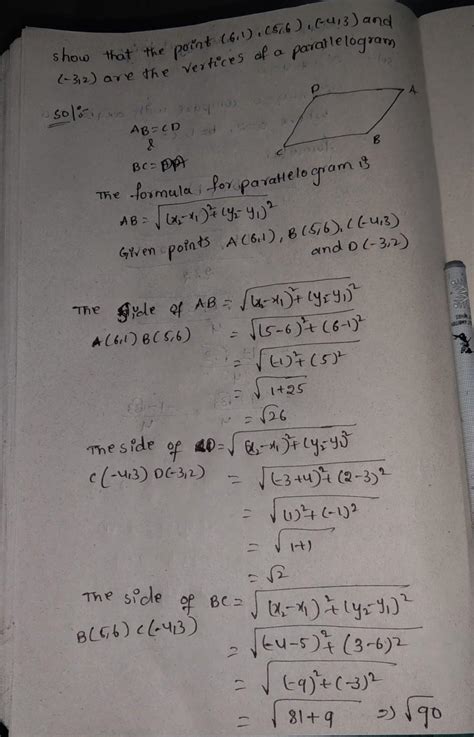 show that the point (6,1), (5,6), (-4,3) and
(-3,2) are the vertices of a parallelogram
sol:-
D A
C B
AB = CD
&
BC =
The formula for parallelogram is
AB = √(x₂-x₁)²+(y₂-y₁)²
Given points A(6,1), B(5,6), C(-4,3)
and D(-3,2)
The side of AB = √(x₂-x₁)²+(y₂-y₁)²
A(6,1) B(5,6) = √(5-6)²+(6-1)²
= √(-1)²+(5)²
= √1+25
= √26
The side of CD = √(x₂-x₁)²+(y₂-y₁)²
C(-4,3) D(-3,2) = √(-3+4)²+(2-3)²
= √(1)²+(-1)²
= √1+1
= √2
The side of BC = √(x₂-x₁)²+(y₂-y₁)²
B(5,6) C(-4,3) = √(-4-5)²+(3-6)²
= √(-9)²+(-3)²
= √81+9 ⇒ √90